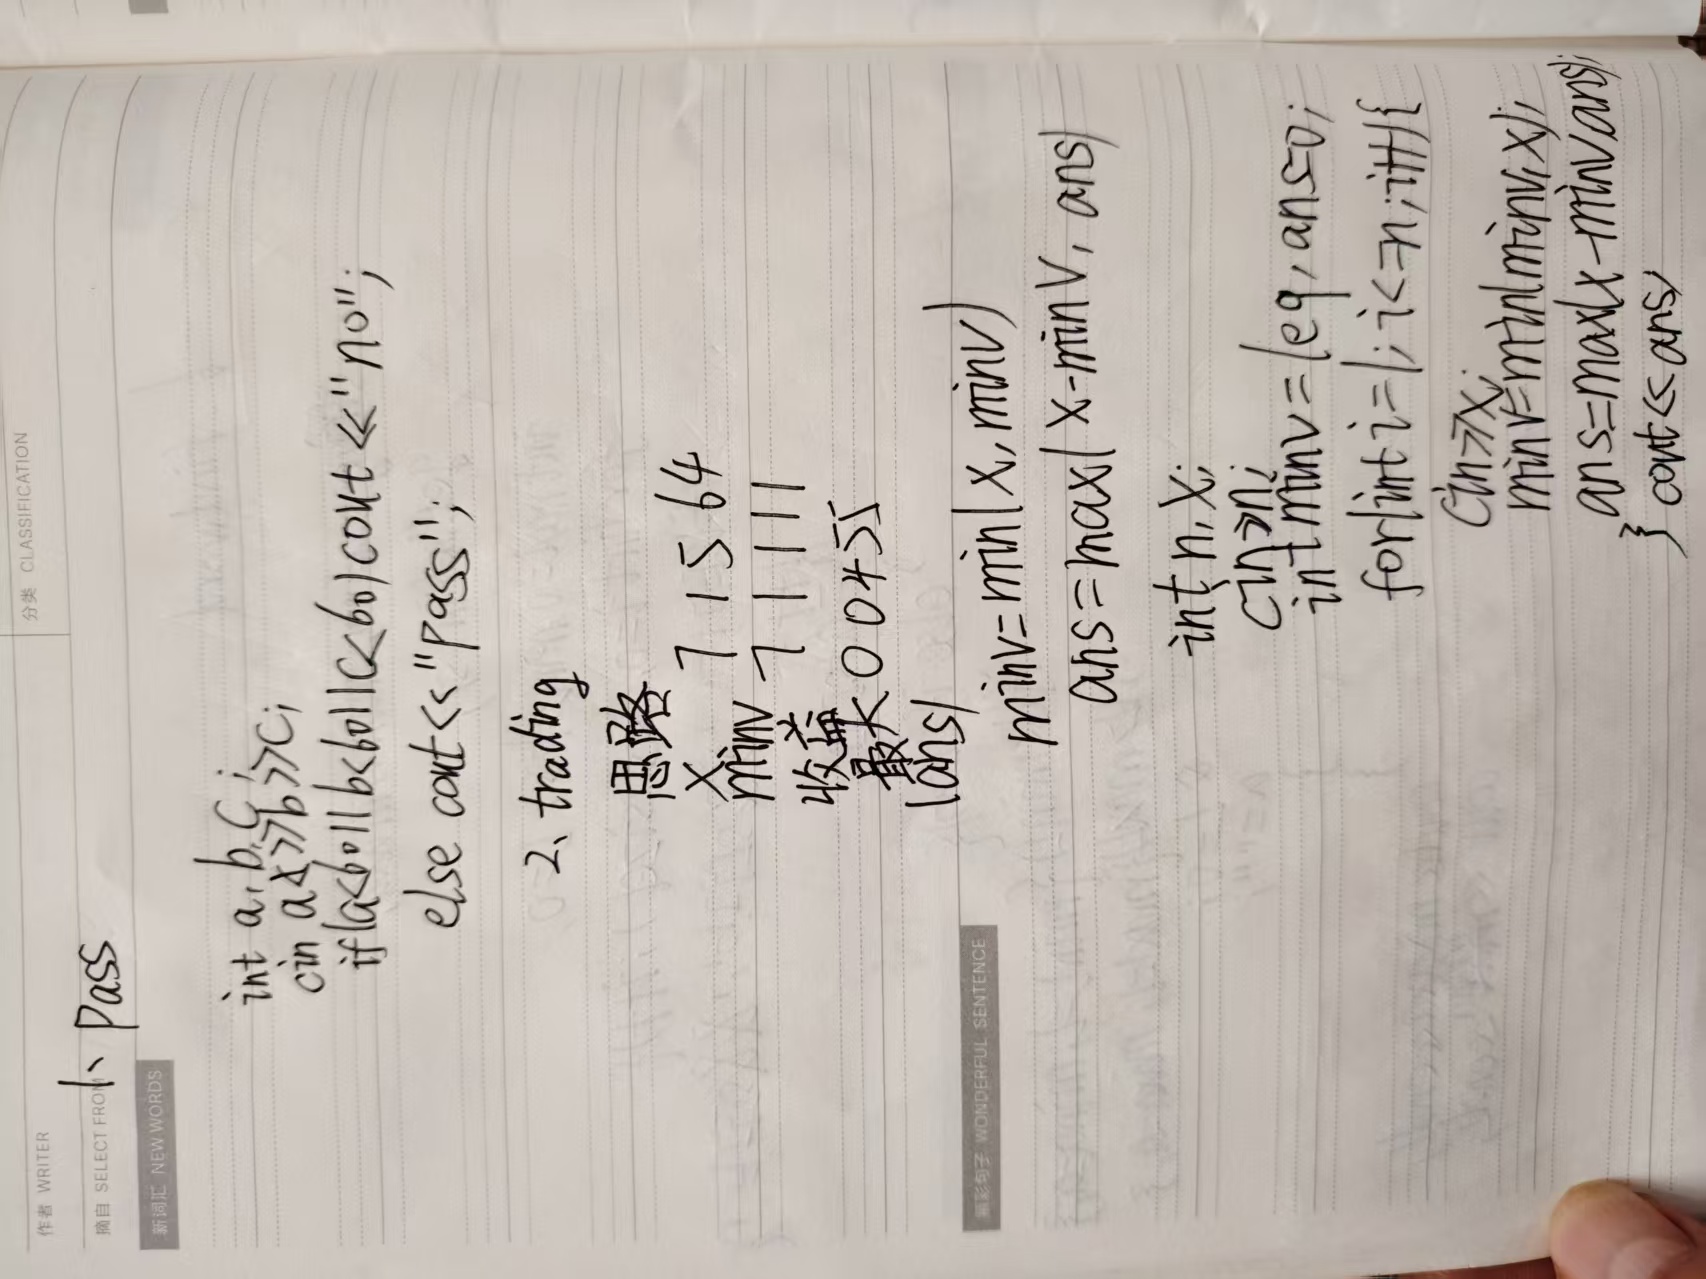 作者 WRITER
分类 CLASSIFICATION
摘自 SELECT FROM
1、Pass
新词汇 NEW WORDS
int a,b,c;
cin a<>>b>>c;
if(a<60||b<60||c<60)cout<<"no";
else cout<<"Pass";
2、trading
思路
x 7 1 5 6 4
minv 7 1 1 1 1
收益
最大 0 0 4 5 5
(ans)
精彩句子 WONDERFUL SENTENCE
minv=min(x,minv)
ans=max(x-minv,ans)
int n,x;
cin>>n;
int minv=1e9,ans=0;
for(int i=1;i<=n;i++){
cin>>x;
minv=min(minv,x);
ans=max(x-minv,ans);
} cout<<ans;